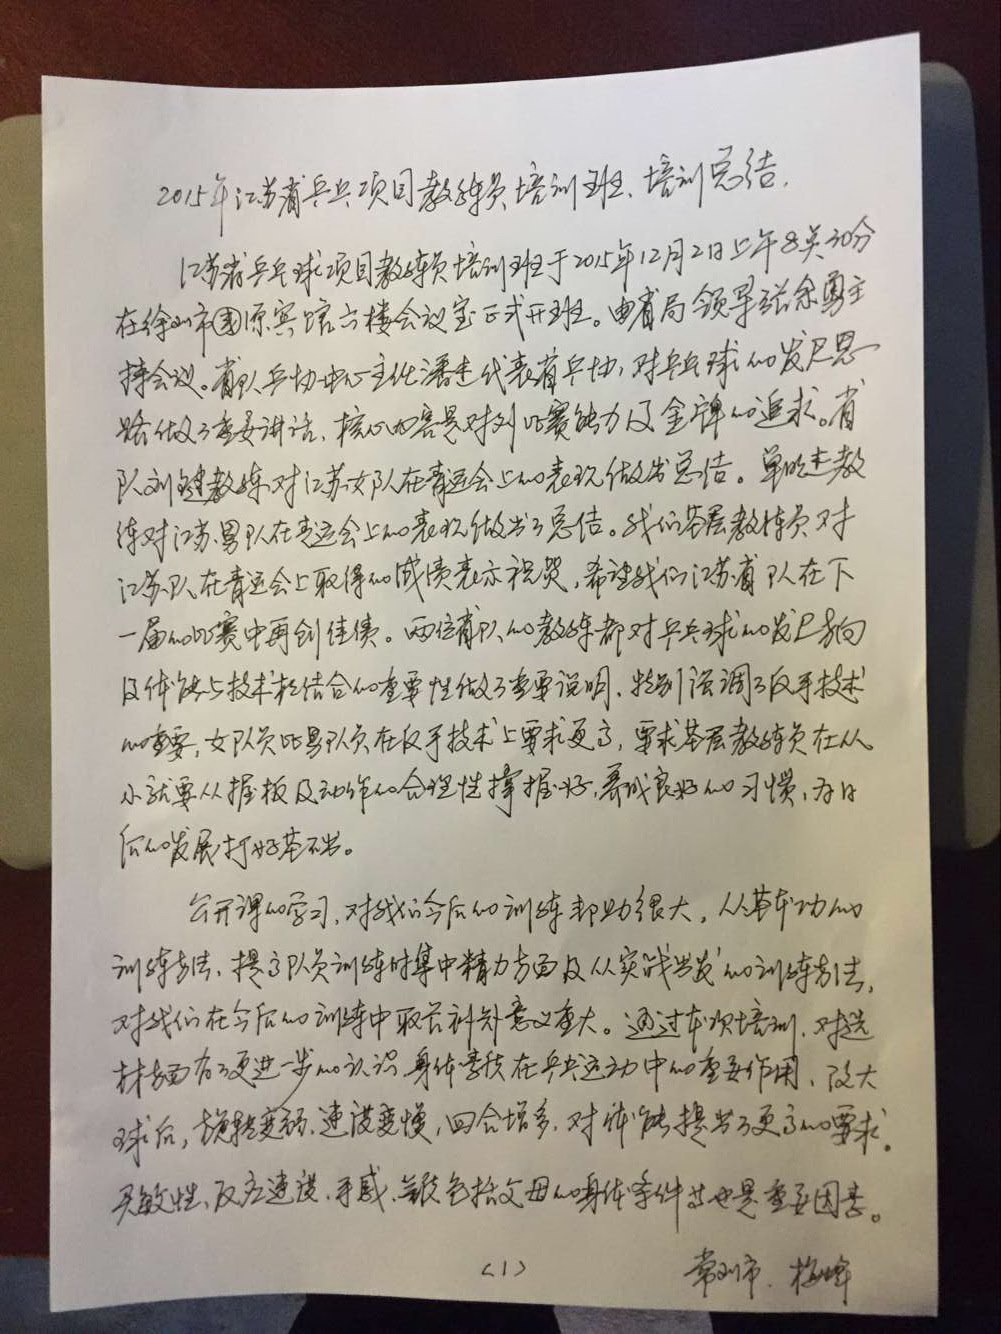 2015年江苏省乒乓项目教练员培训班、培训总结.
江苏省乒乓球项目教练员培训班于2015年12月2日上午8点30分
在徐州市国原宾馆六楼会议室正式开班。由省局领导张余勇主
持会议。省队乒协中心主任潘 代表省乒协,对乒乓球的发展思
路做了重要讲话、核心内容是对列比赛能力及金牌的追求。省
队刘 教练对江苏女队在青运会上的表现做出总结。单 教
练对江苏男队在青运会上的表现做出了总结。我们基层教练员对
江苏队在青运会上取得的成绩表示祝贺,希望我们江苏省队在下
一届的比赛中再创佳绩。两位省队的教练都对乒乓球的发展方向
及体能与技术相结合的重要性做了重要说明、特别强调了反手技术
的重要,女队员比男队员在反手技术上要求更高,要求基层教练员在从
小就要从握板及动作的合理性掌握好,养成良好的习惯,为日
后的发展打好基础。
公开课的学习,对我们今后的训练帮助很大,从基本功的
训练方法、提高队员训练时集中精力方面及从实战出发的训练方法,
对我们在今后的训练中取长补短意义重大。通过本次培训、对选
材方面有了更进一步的认识身体素质在乒乓运动中的重要作用、改大
球后,旋转变弱、速度变慢,回合增多,对体能提出了更高的要求.
灵敏性、反应速度、手感、 包括父母的身体条件等也是重要因素。
(1)
常州市、梅峰